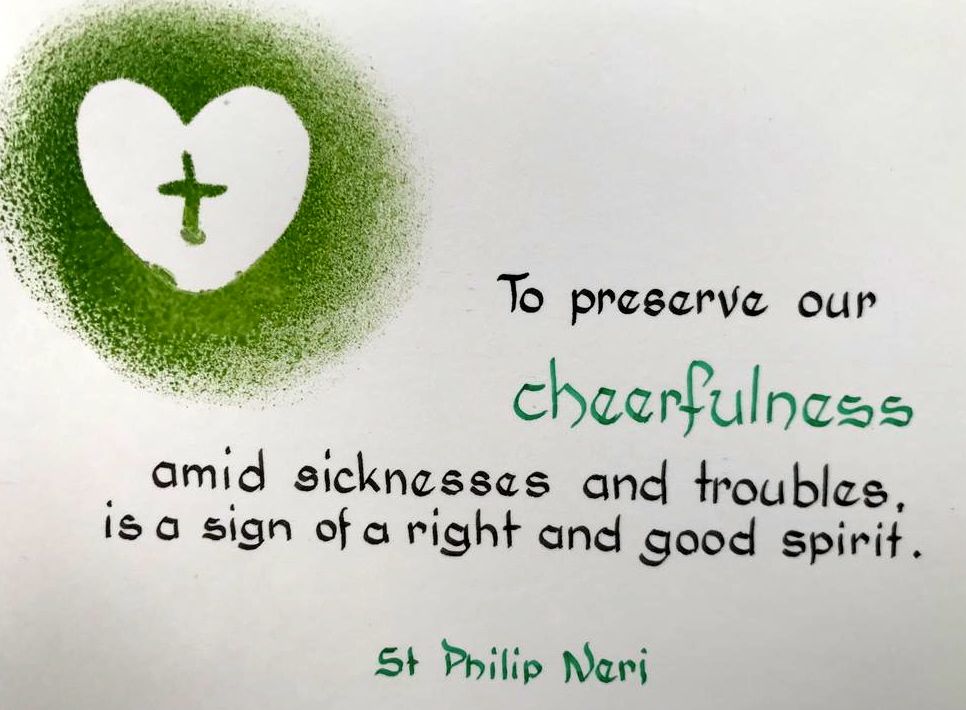 To preserve our
cheerfulness
amid sicknesses and troubles,
is a sign of a right and good spirit.
St Philip Neri